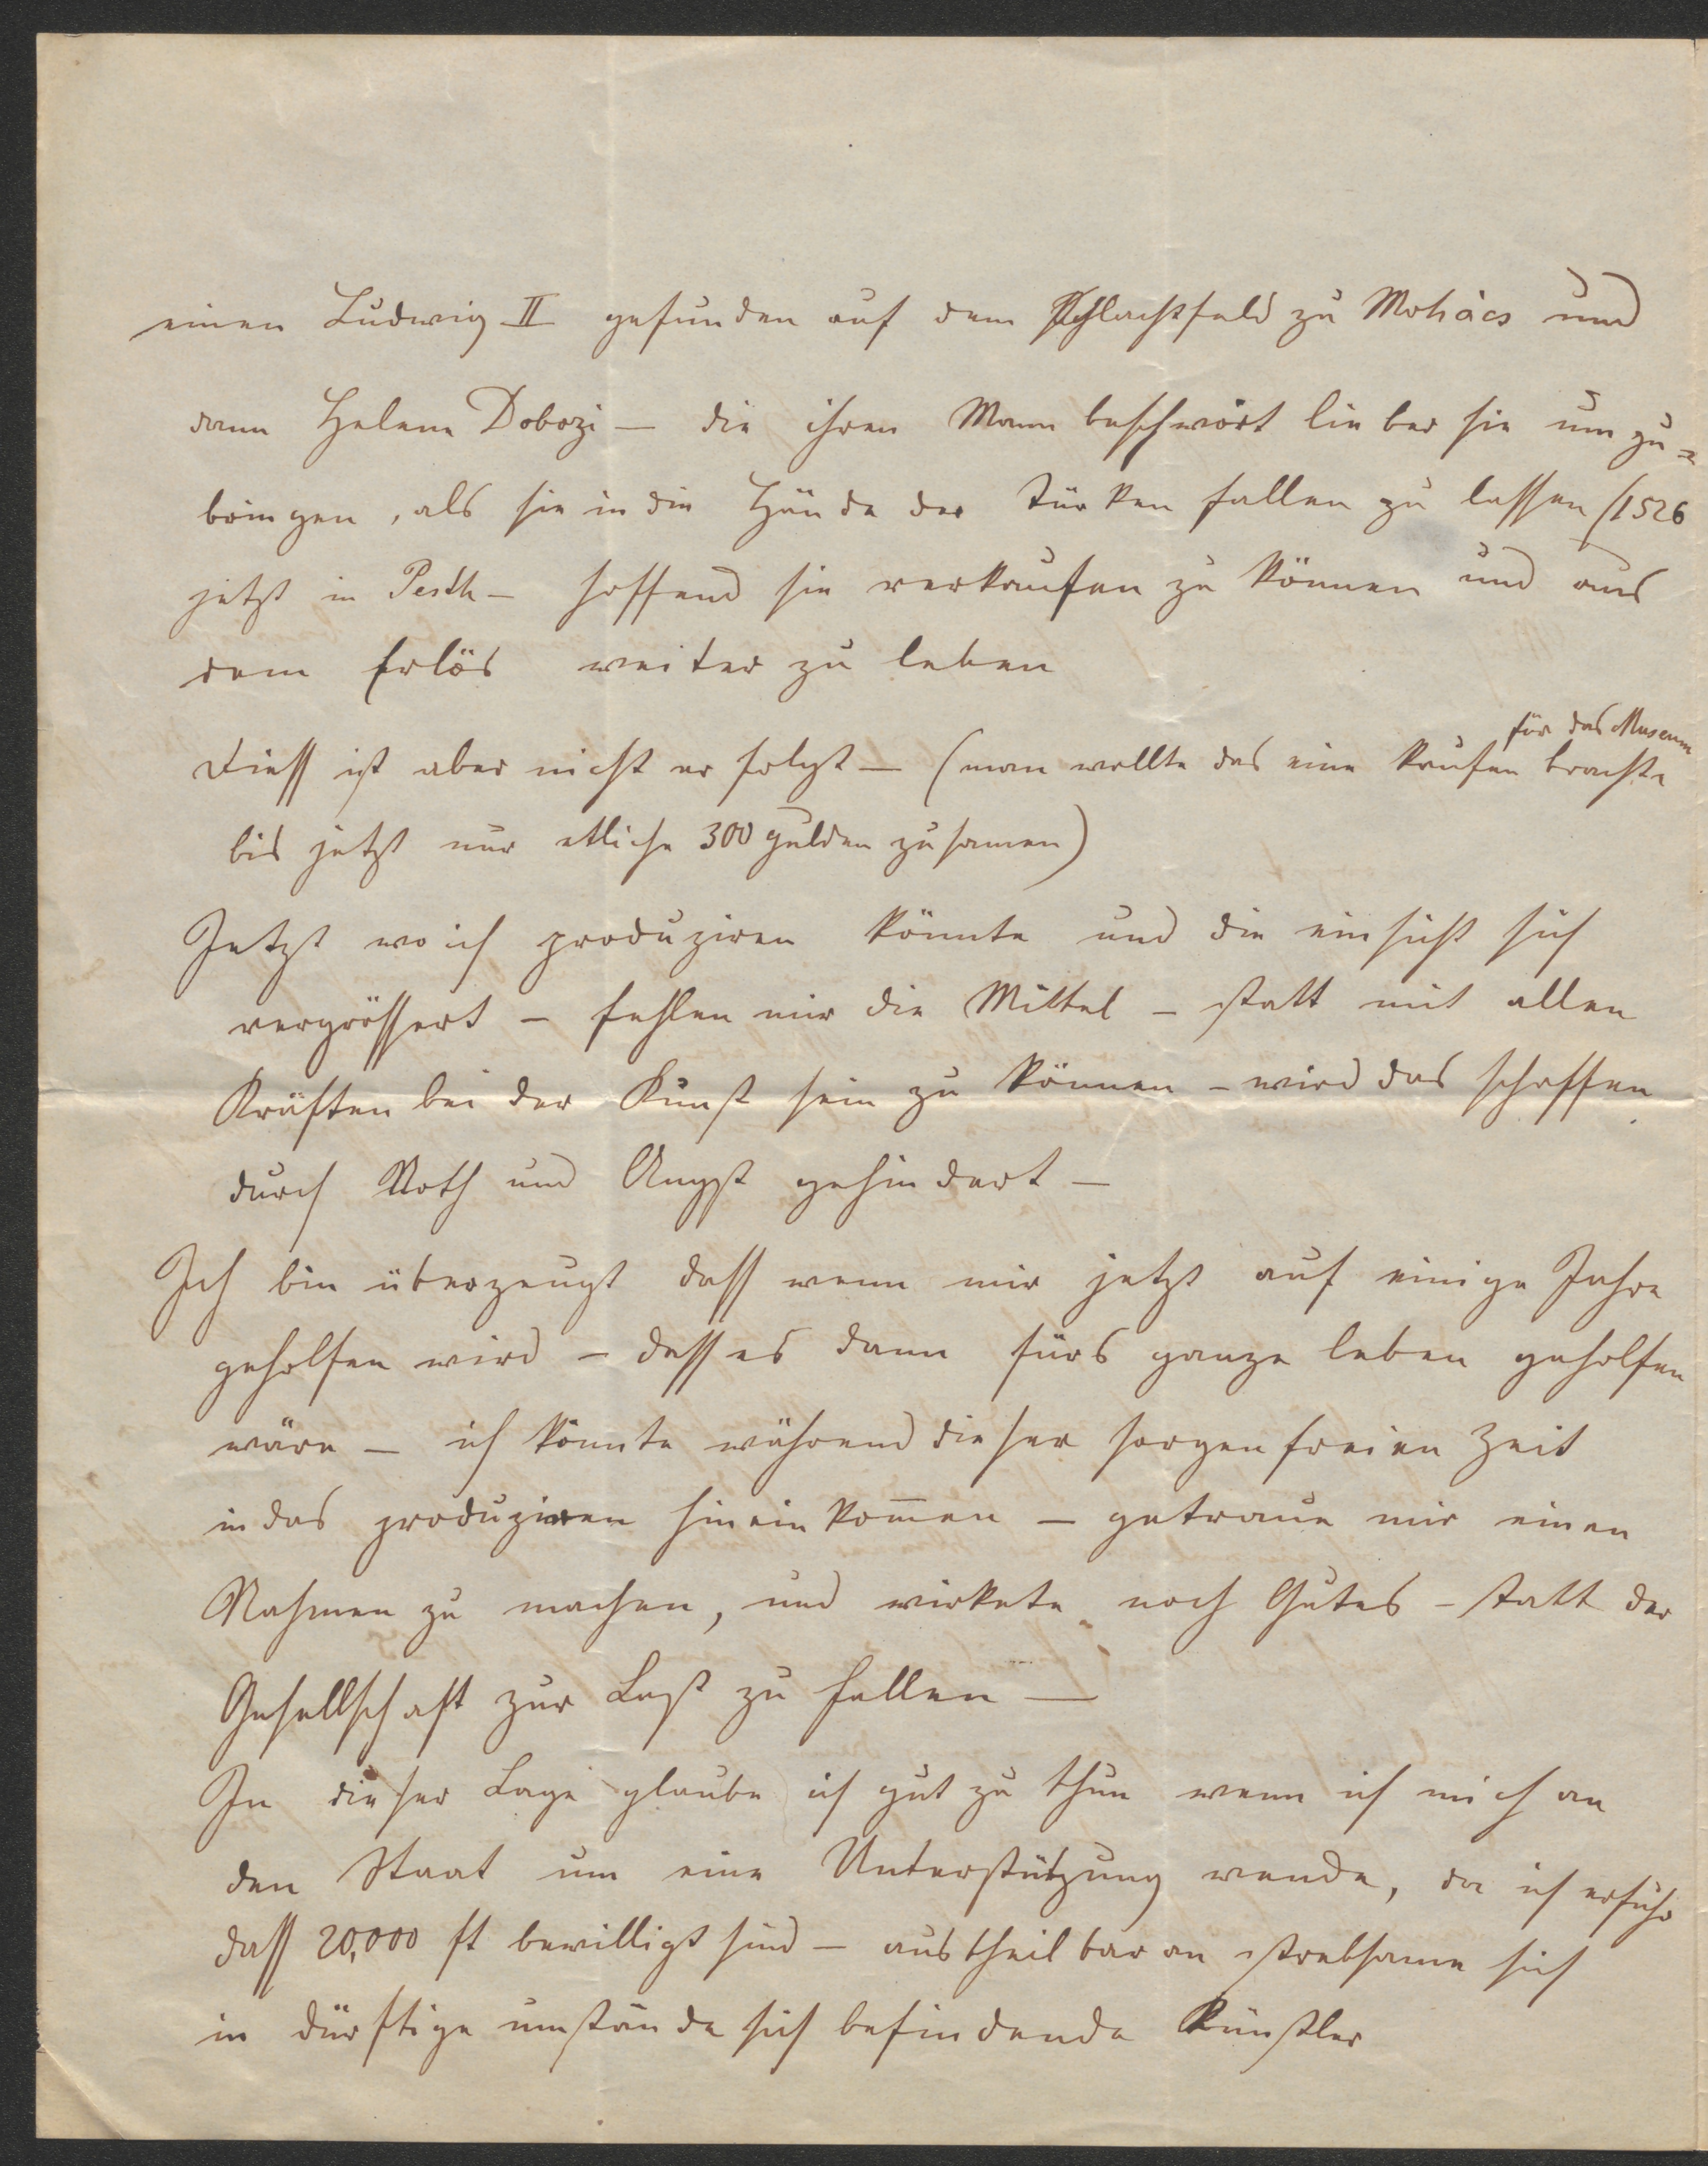 einen Ludwig II gefunden auf dem Schlachtfeld zu Mohács und
dann Helene Dobozi — die ihren Mann beschwört lieber sie umzu=
bringen, als sie in die Hände der Türken fallen zu lassen (1526
jetzt in Pesth — hoffend sie verkaufen zu können und aus
dem Erlös weiter zu leben
für das Museum
Diess ist aber nicht erfolgt — (man wollte das eine kaufen brachte
bis jetzt nur etliche 300 gulden zusamen)
Jetzt wo ich produziren könnte und die einsicht sich
vergrössert — fehlen mir die Mittel — statt mit allen
Kräften bei der Kunst sein zu können — wird das schaffen
durch Noth und Angst gehindert —
Ich bin überzeugt dass wenn mir jetzt auf einige Jahre
geholfen wird — dass es dann fürs ganze leben geholfen
wäre — ich könnte während dieser sorgenfreien Zeit
in das produziren hineinkom̅en — getraue mir einen
Nahmen zu machen, und wirkete noch Gutes — statt der
Gesellschaft zur Last zu fallen —
In dieser Lage glaube ich gut zu thun wenn ich mich an
den Staat um eine Unterstützung wende, da ich erfuhr
dass 20,000 ft bewilligt sind — austheilbar an strebsame sich
in dürftige umstände sich befindende Künstler